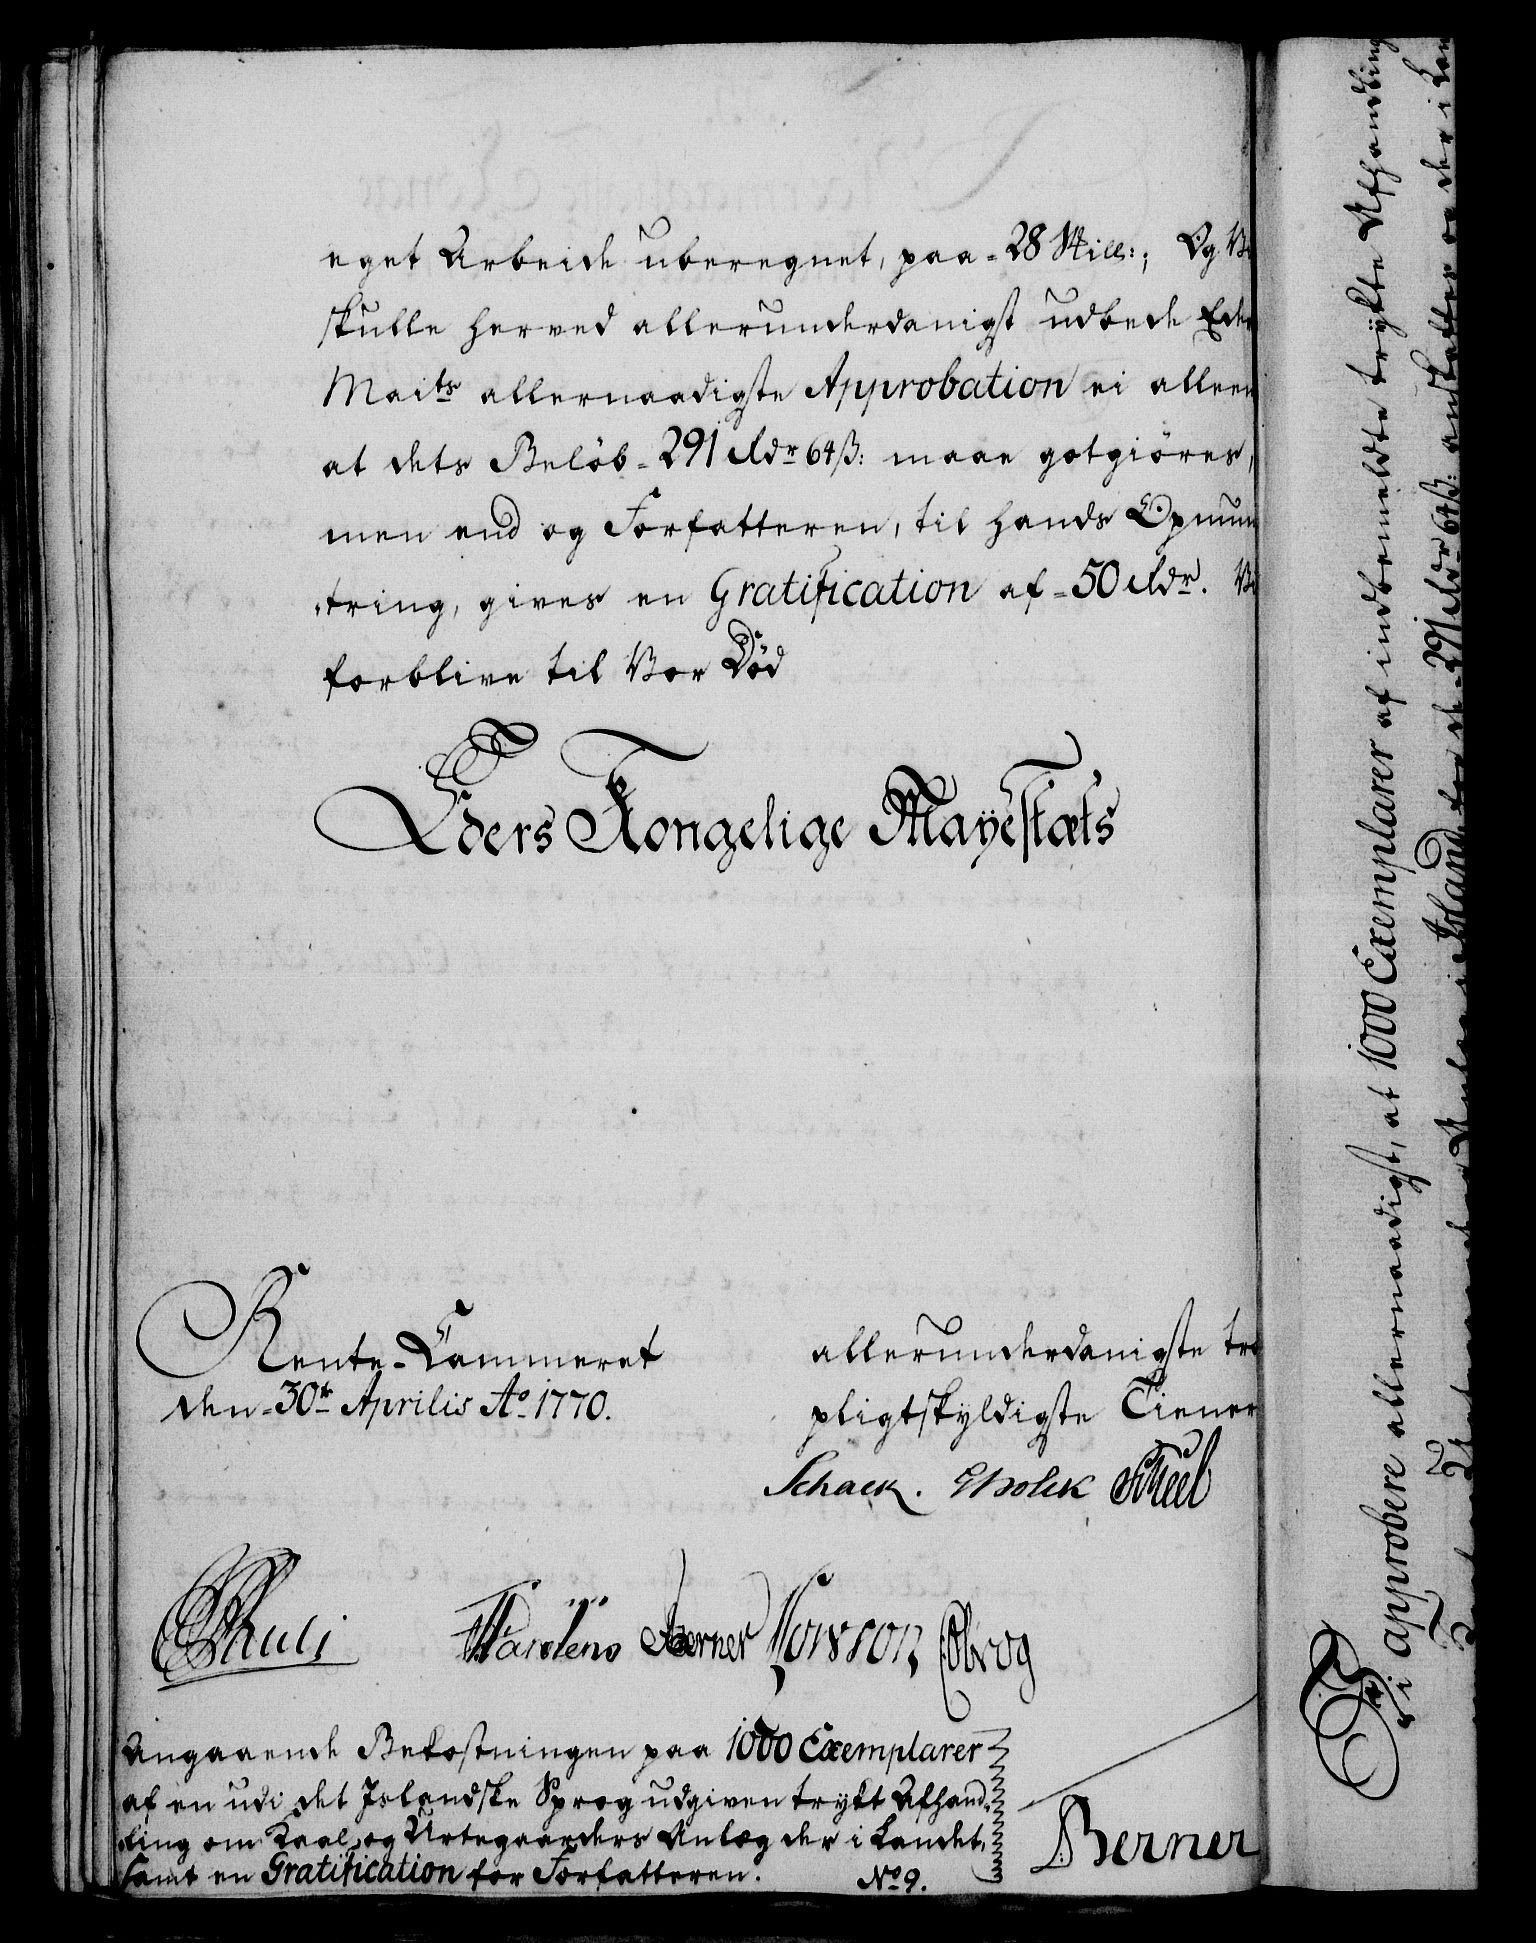 eget Arbeide uberegnet, paa = 28 Skill:; Og Vi
skulle herved allerunderdanigst udbede Eders
Maits allernaadigste Approbation ei alleen
at dets Beløb = 291 Rdr 64 ß: maae gotgiöres,
men end og Forfatteren, til hands Opmun
tring, gives en Gratification af = 50 Rdr. Vi
forblive til Vor Død
Eders Kongelige Mayestæts
Rente-Cammeret
den = 30te Aprilis Ao 1770.
allerunderdanigste tro
pligtskyldigste Tienere
Schack. GHolck Scheel
Martens Berner Horson Obrog
Angaaende Bekostningen paa 1000 Exemplarer
af en udi det Islandske Sprog udgiven trykt Afhand-
ling om Kaal og Urtegaarders Anlæg der i Landet,
samt en Gratification for Forfatteren.
No 9.
Berner
Vi approbere allernaadigst, at 1000 Exemplarer af indbemeldte trykte Afhandling